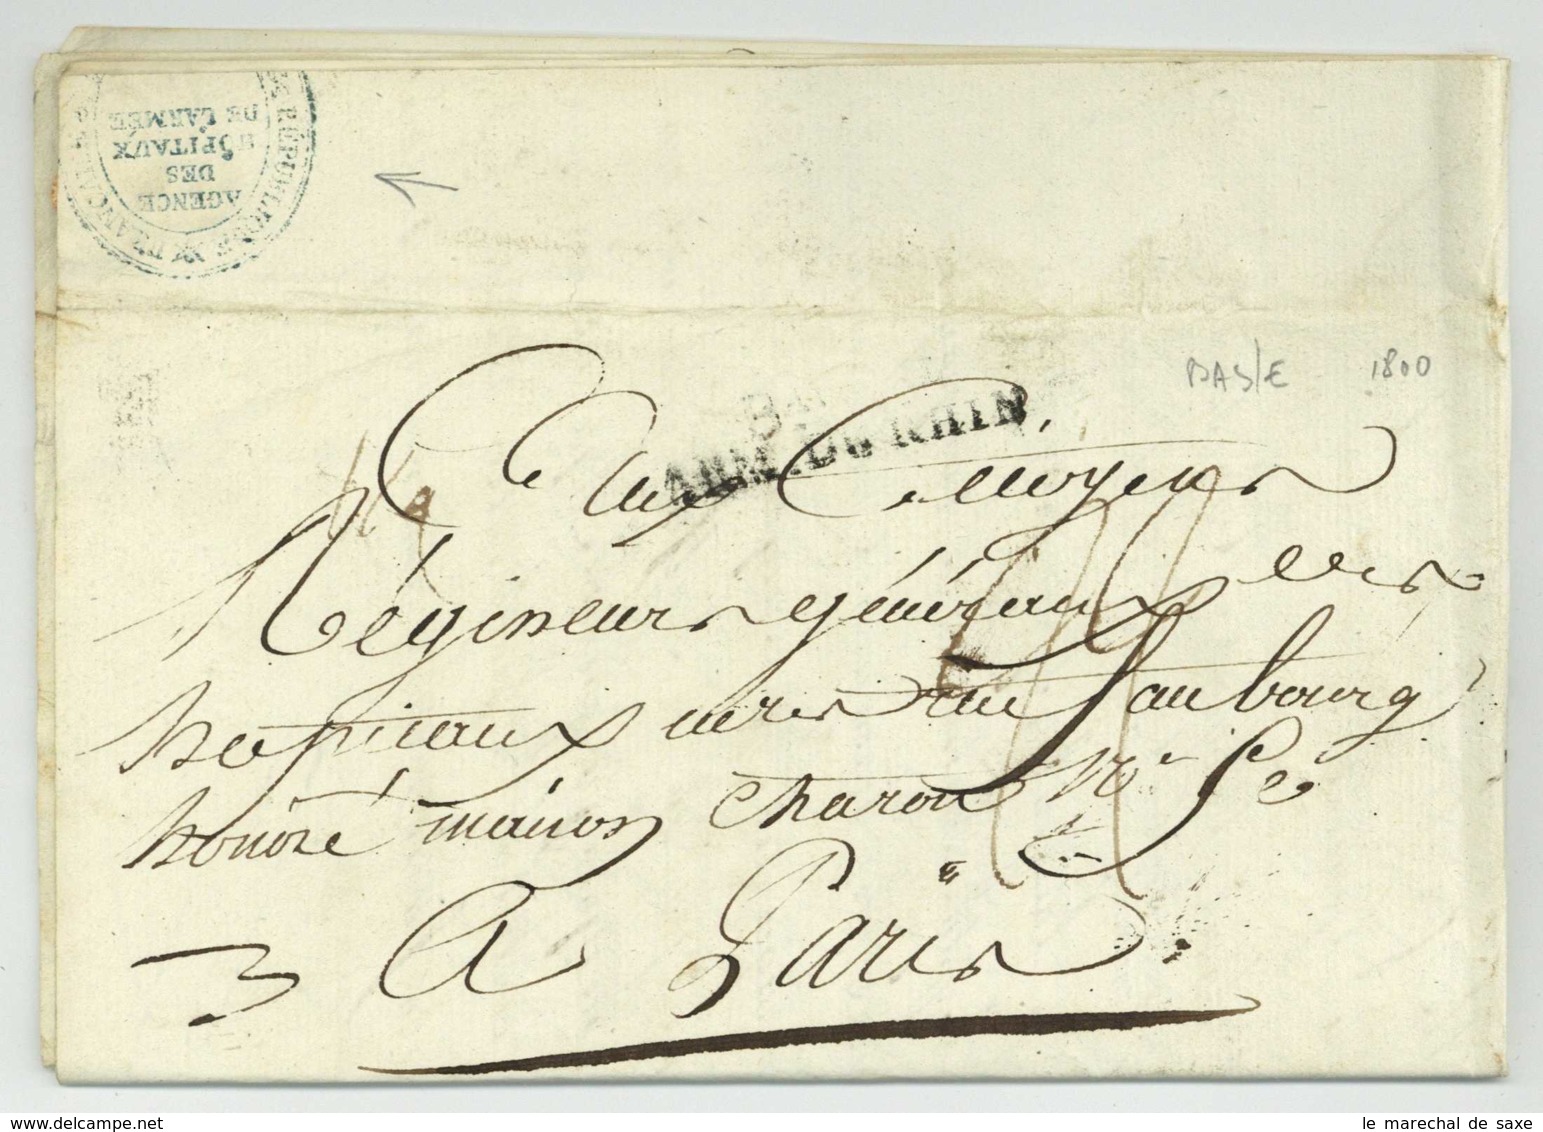 RÉPUBLIQUE FRANÇAISE
AGENCE
DES
HÔPITAUX
DE L'ARMÉE
BASLE 1800
ARM. DU RHIN
Aux Citoyens
Régisseurs généraux des
hopitaux mres rue faubourg
honoré maison charost
A Paris
le marechal de saxe